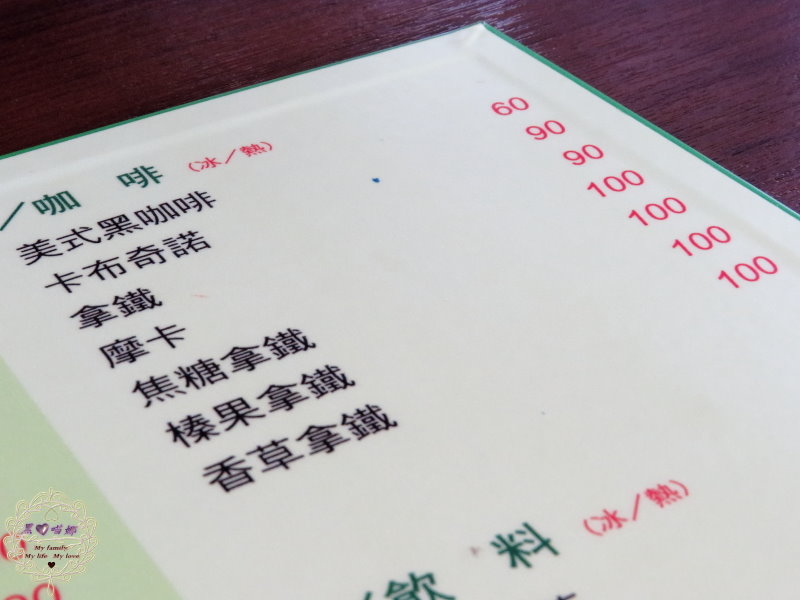 ／咖 啡 (冰／熱)
美式黑咖啡 60
卡布奇諾 90
拿鐵 90
摩卡 100
焦糖拿鐵 100
榛果拿鐵 100
香草拿鐵 100
飲 料 (冰／熱)
My family
My life My love